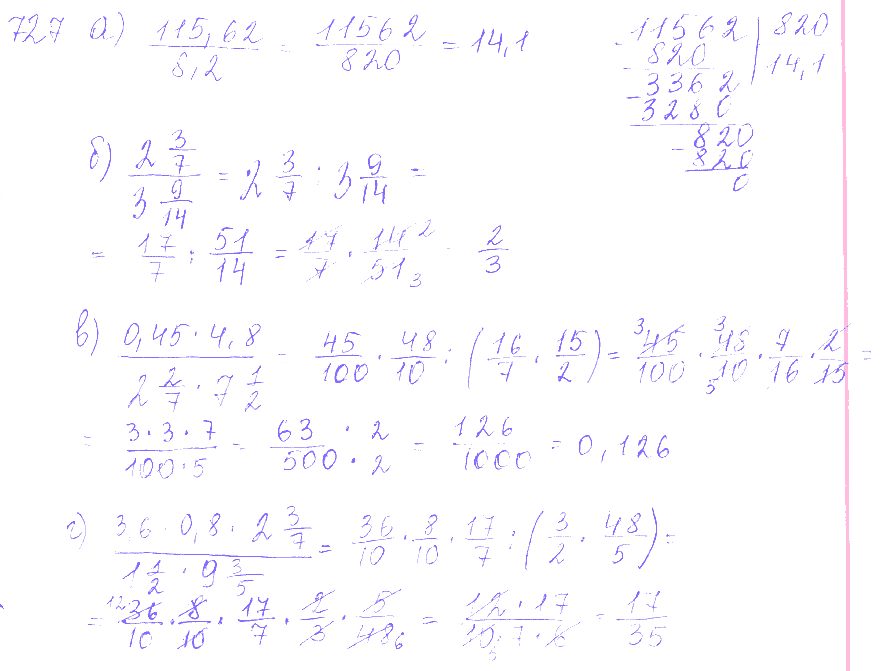 727 а) 115,62 / 8,2 = 11562 / 820 = 14,1
11562 | 820
820 | 14,1
3362
3280
820
820
0
б) 2 3/7 / 3 9/14 = 2 3/7 : 3 9/14 =
= 17/7 : 51/14 = 17/7 · 14 2/51 3 = 2/3
в) 0,45 · 4,8 / 2 2/7 · 7 1/2 = 45/100 · 48/10 : (16/7 · 15/2) = 3 45/100 · 3 48/5 10 · 7/16 · 2/15 =
= 3·3·7 / 100·5 = 63 · 2 / 500 · 2 = 126/1000 = 0,126
г) 3,6 · 0,8 · 2 3/7 / 1 1/2 · 9 3/5 = 36/10 · 8/10 · 17/7 : (3/2 · 48/5) =
= 12 36/10 · 8/10 · 17/7 · 2/3 · 5/48 6 = 12 · 17 / 10 5 · 7 · 6 = 17/35